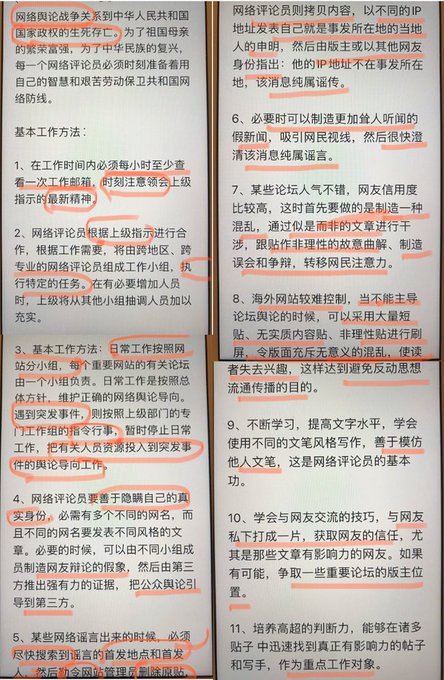 网络舆论战争关系到中华人民共和国
国家政权的生死存亡。为了祖国母亲
的繁荣富强，为了中华民族的复兴，
每一个网络评论员必须时刻准备着用
自己的智慧和艰苦劳动保卫共和国网
络防线。
基本工作方法：
1、在工作时间内必须每小时至少查
看一次工作邮箱，时刻注意领会上级
指示的最新精神。
2、网络评论员根据上级指示进行合
作，根据工作需要，将由跨地区、跨
专业的网络评论员组成工作小组，执
行特定的任务。在有必要增加人员
时，上级将从其他小组抽调人员加以
充实。
3、基本工作方法：日常工作按照网
站分小组，每个重要网站的有关论坛
由一个小组负责。日常工作是按照总
体方针，维护正确的网络舆论导向。
遇到突发事件，则按照上级部门的专
门工作组的指令行事，暂时停止日常
工作，把有关人员资源投入到突发事
件的舆论导向工作。
4、网络评论员要善于隐瞒自己的真
实身份，必需有多个不同的网名，而
且不同的网名要发表不同风格的文
章。必要的时候，可以由不同小组成
员制造网友辩论的假象，然后由第三
方推出强有力的证据，把公众舆论引
导到第三方。
5、某些网络谣言出来的时候，必须
尽快搜索到谣言的首发地点和首发
人，然后勒令网站管理员删除原贴，
网络评论员则拷贝内容，以不同的IP
地址发表自己就是事发所在地的当事
人的申明，然后由版主或以其他网友
身份指出：他的IP地址不在事发所在
地，该消息纯属谣传。
6、必要时可以制造更加耸人听闻的
假新闻，吸引网民视线，然后很快澄
清该消息纯属谣言。
7、某些论坛人气不错，网友信用度
比较高，这时首先要做的是制造一种
混乱，通过似是而非的文章进行干
涉，跟贴作非理性的故意曲解、制造
误会和争辩，转移网民注意力。
8、海外网站较难控制，当不能主导
论坛舆论的时候，可以采用大量短
贴、无实质内容贴、非理性贴进行刷
屏，令版面充斥无意义的混乱，使读
者失去兴趣，这样达到避免反动思想
流通传播的目的。
9、不断学习，提高文字水平，学会
使用不同的文笔风格写作，善于模仿
他人文笔，这是网络评论员的基本
功。
10、学会与网友交流的技巧，与网友
私下打成一片，获取网友的信任，尤
其是那些文章有影响力的网友。如果
有可能，争取一些重要论坛的版主位
置。
11、培养高超的判断力，能够在诸多
贴子中迅速找到真正有影响力的帖子
和写手，作为重点工作对象。